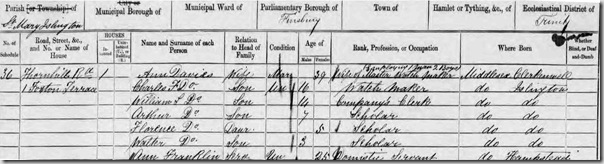 Parish [or Township] of St Mary Islington
City or Municipal Borough of
Municipal Ward of
Parliamentary Borough of Finsbury
Town of
Hamlet or Tything, &c., of
Ecclesiastical District of Trinity
No. of Schedule Road, Street, &c., and No. or Name of House HOUSES Name and Surname of each Person Relation to Head of Family Condition Age of Males Females Rank, Profession, or Occupation Where Born Whether Blind, or Deaf-and-Dumb
36 Thornhill Rd 1 Ann Davies Wife Mar 39 Wife of Master Watch Maker Middlesex Clerkenwell
1 Foxton Terrace Charles F Do Son Un 16 Watch Maker do Islington
William L Do Son 14 Company's Clerk do do
Arthur Do Son 7 Scholar do do
Florence Do Daur 5 Scholar do do
Walter Do Son 3 Scholar do do
Ann Franklin Un 25 Domestic Servant do Hampstead